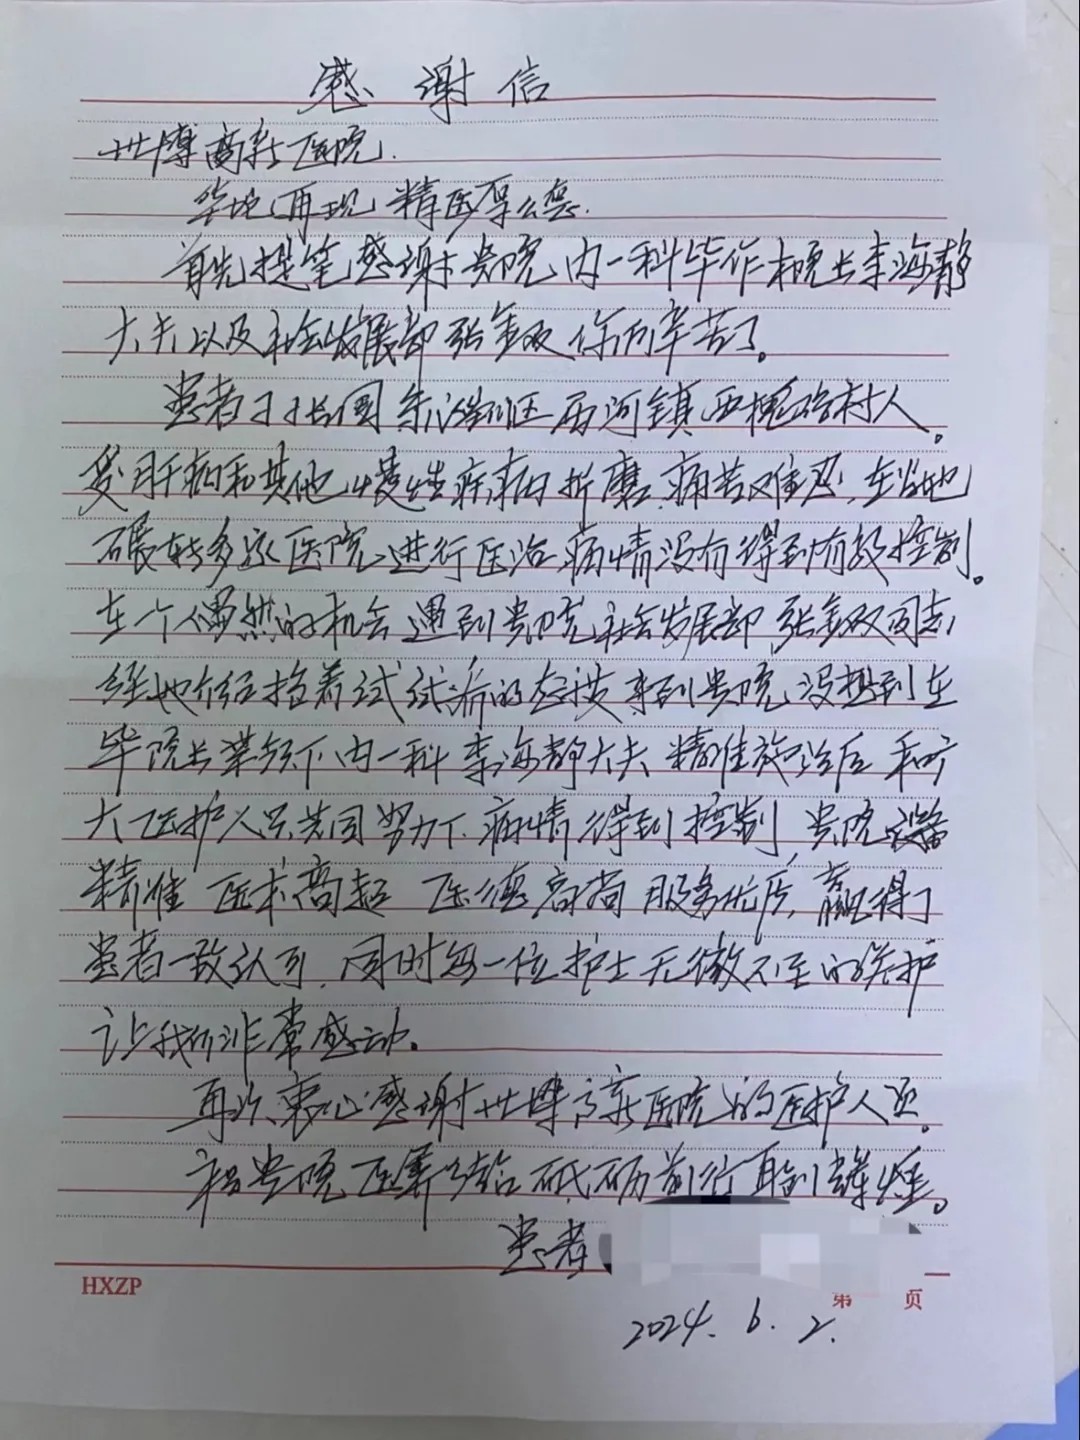 感谢信
世博高新医院.
华佗再现 精医厚德.
首先提笔感谢贵院内一科毕作 院长李海静
大夫以及社会发展部张金双 你们辛苦了。
患者于长国 淄川区西河镇西槐峪村人.
受肝病和其他慢性疾病折磨,痛苦难忍,在当地
碾转多家医院进行医治 病情没有得到有效控制。
在一个偶然的机会遇到贵院社会发展部张金双同志,
经她介绍抱着试试看的态度来到贵院,没想到在
毕院长带领下内一科李海静大夫精准救治后和广
大医护人员共同努力下.病情得到控制,贵院设备
精准 医术高超 医德高尚 服务优质,赢得了
患者一致认可,同时每一位护士无微不至的关护
让我们非常感动。
再次衷心感谢世博高新医院的医护人员.
祝贵院医 砥砺前行再创辉煌。
患者
HXZP
第 页
2024. 6. 2.